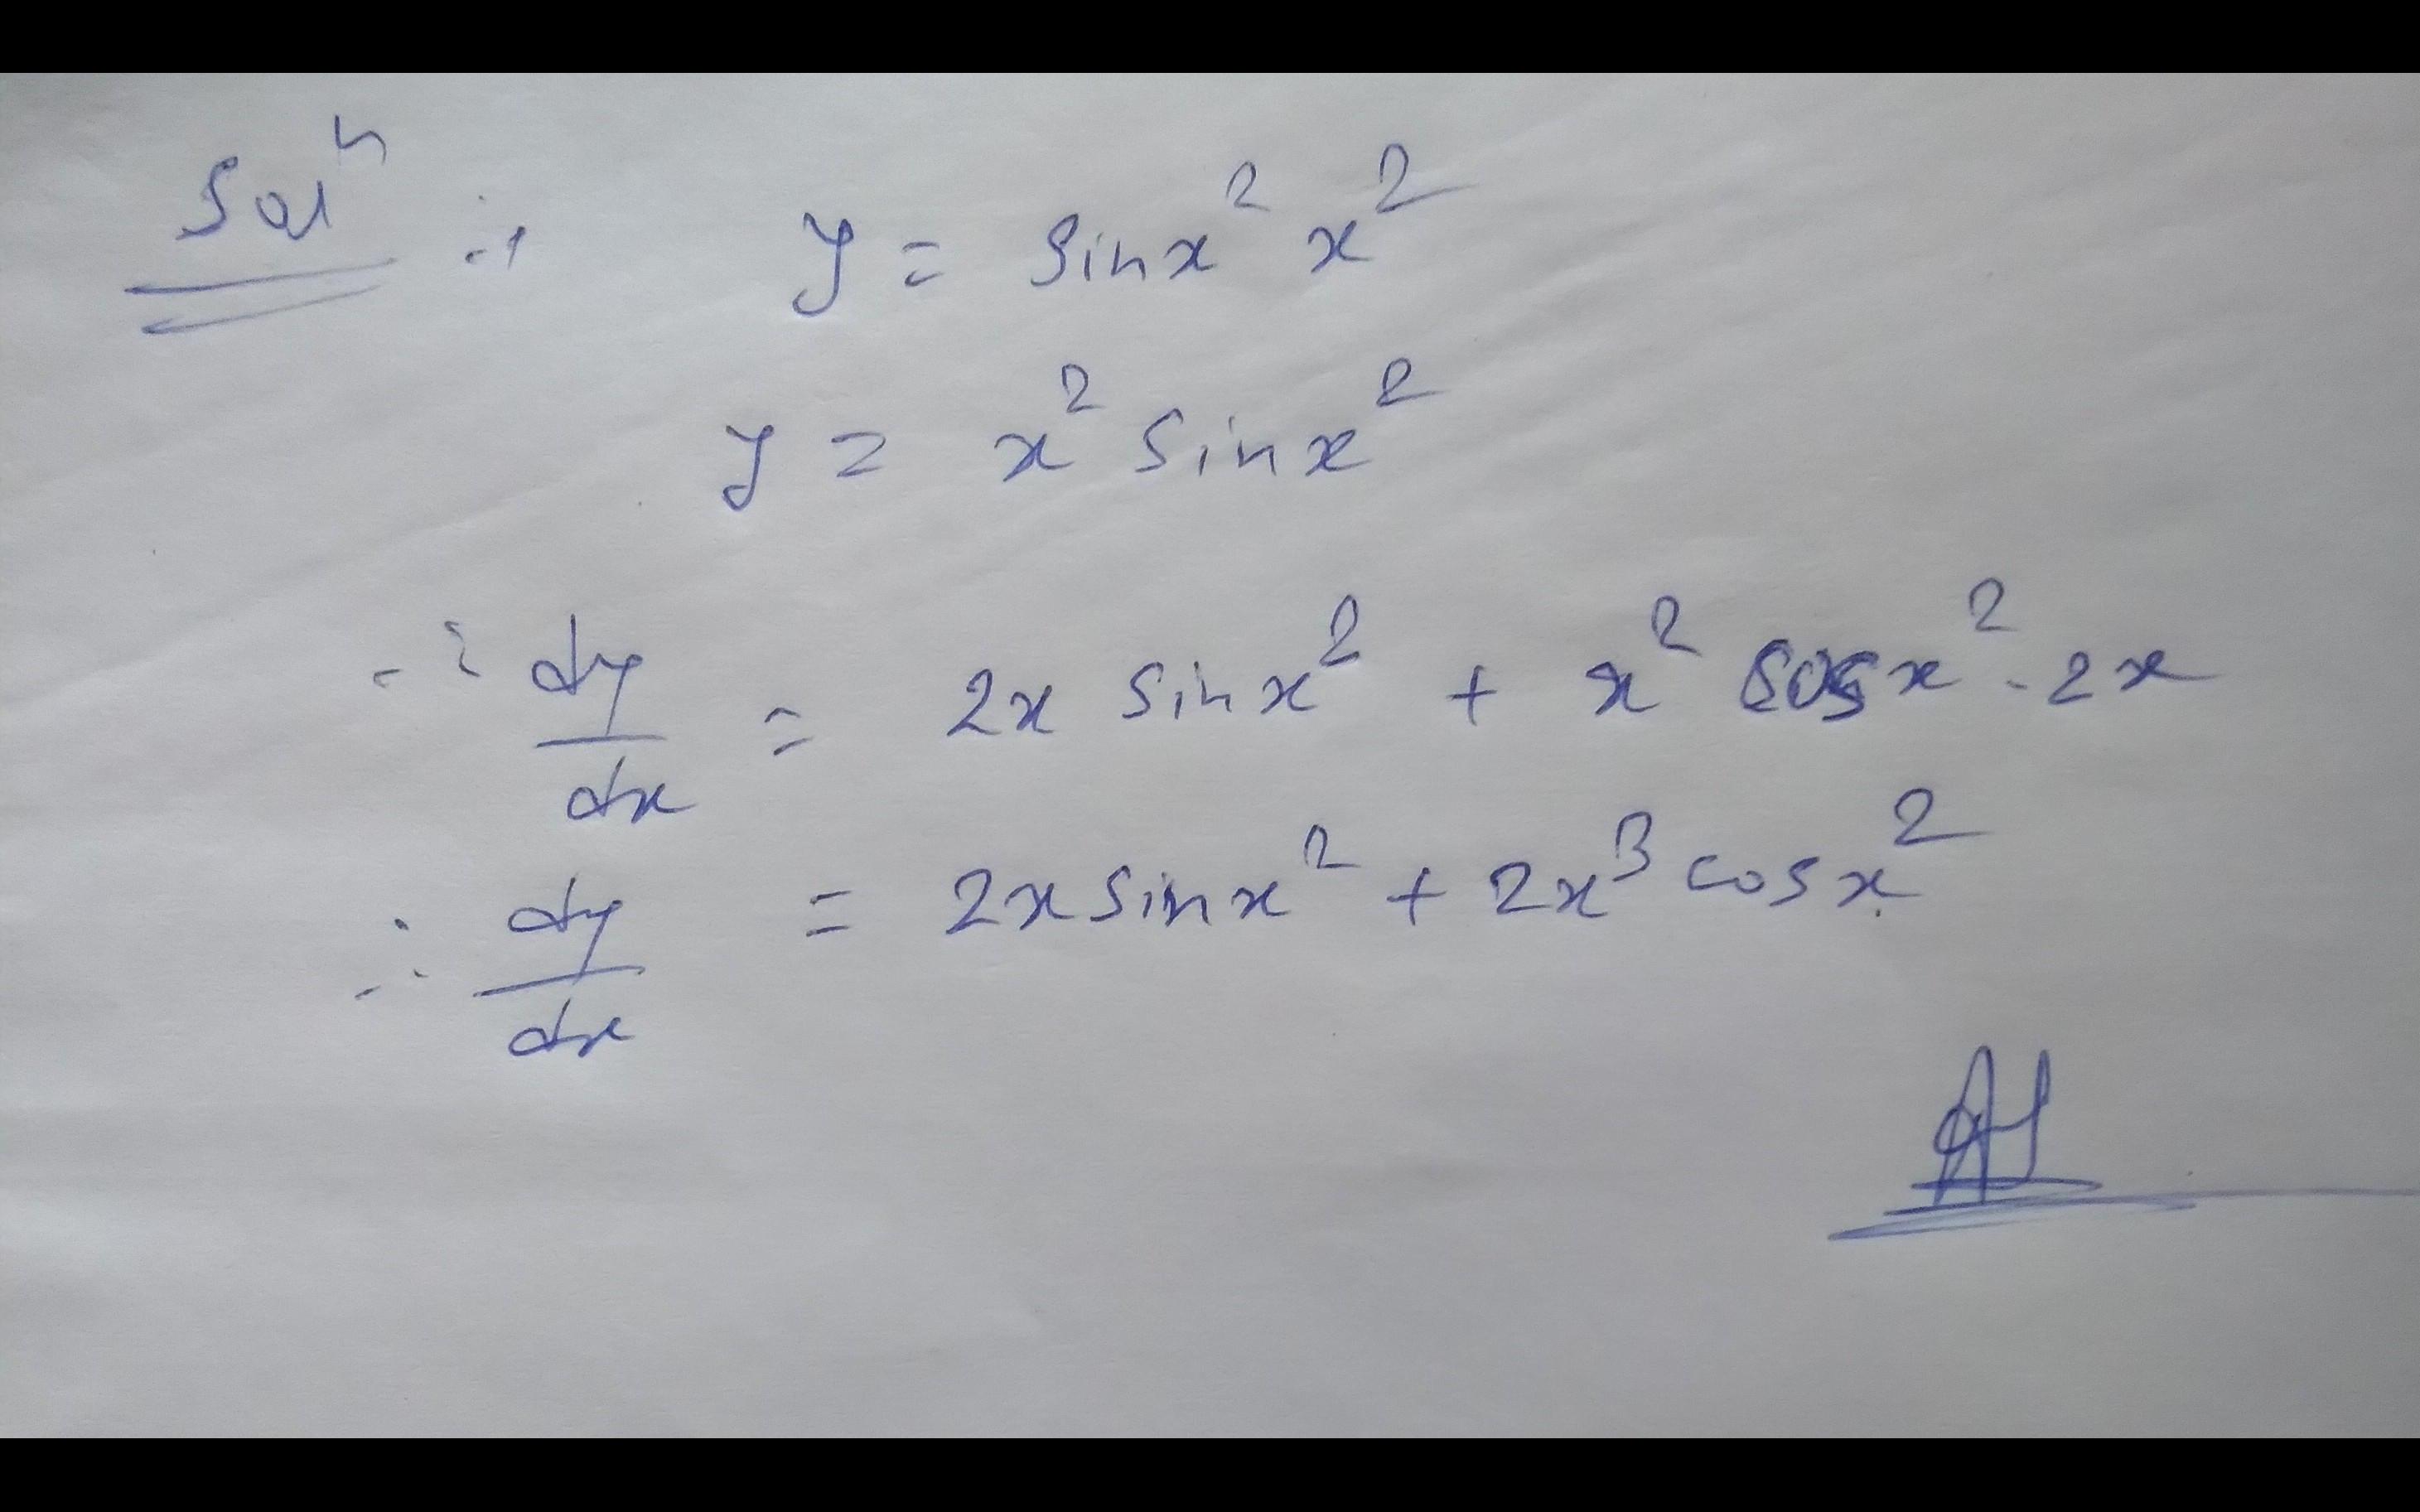 Solⁿ :-
y = sinx² x²
y = x² sinx²
∴ dy/dx = 2x sinx² + x² cosx² · 2x
∴ dy/dx = 2x sinx² + 2x³ cosx²